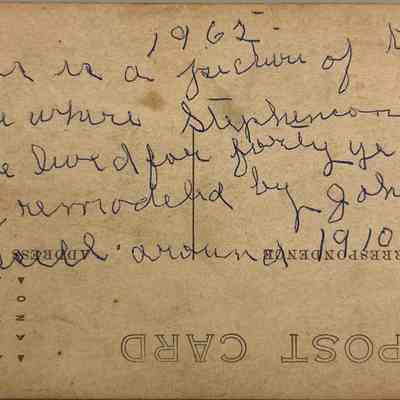 1962
is is a picture of
where Stephenson
lived for forty ye
remodeled by Joh
around 1910
CORRESPONDENCE
ADDRESS
POST CARD